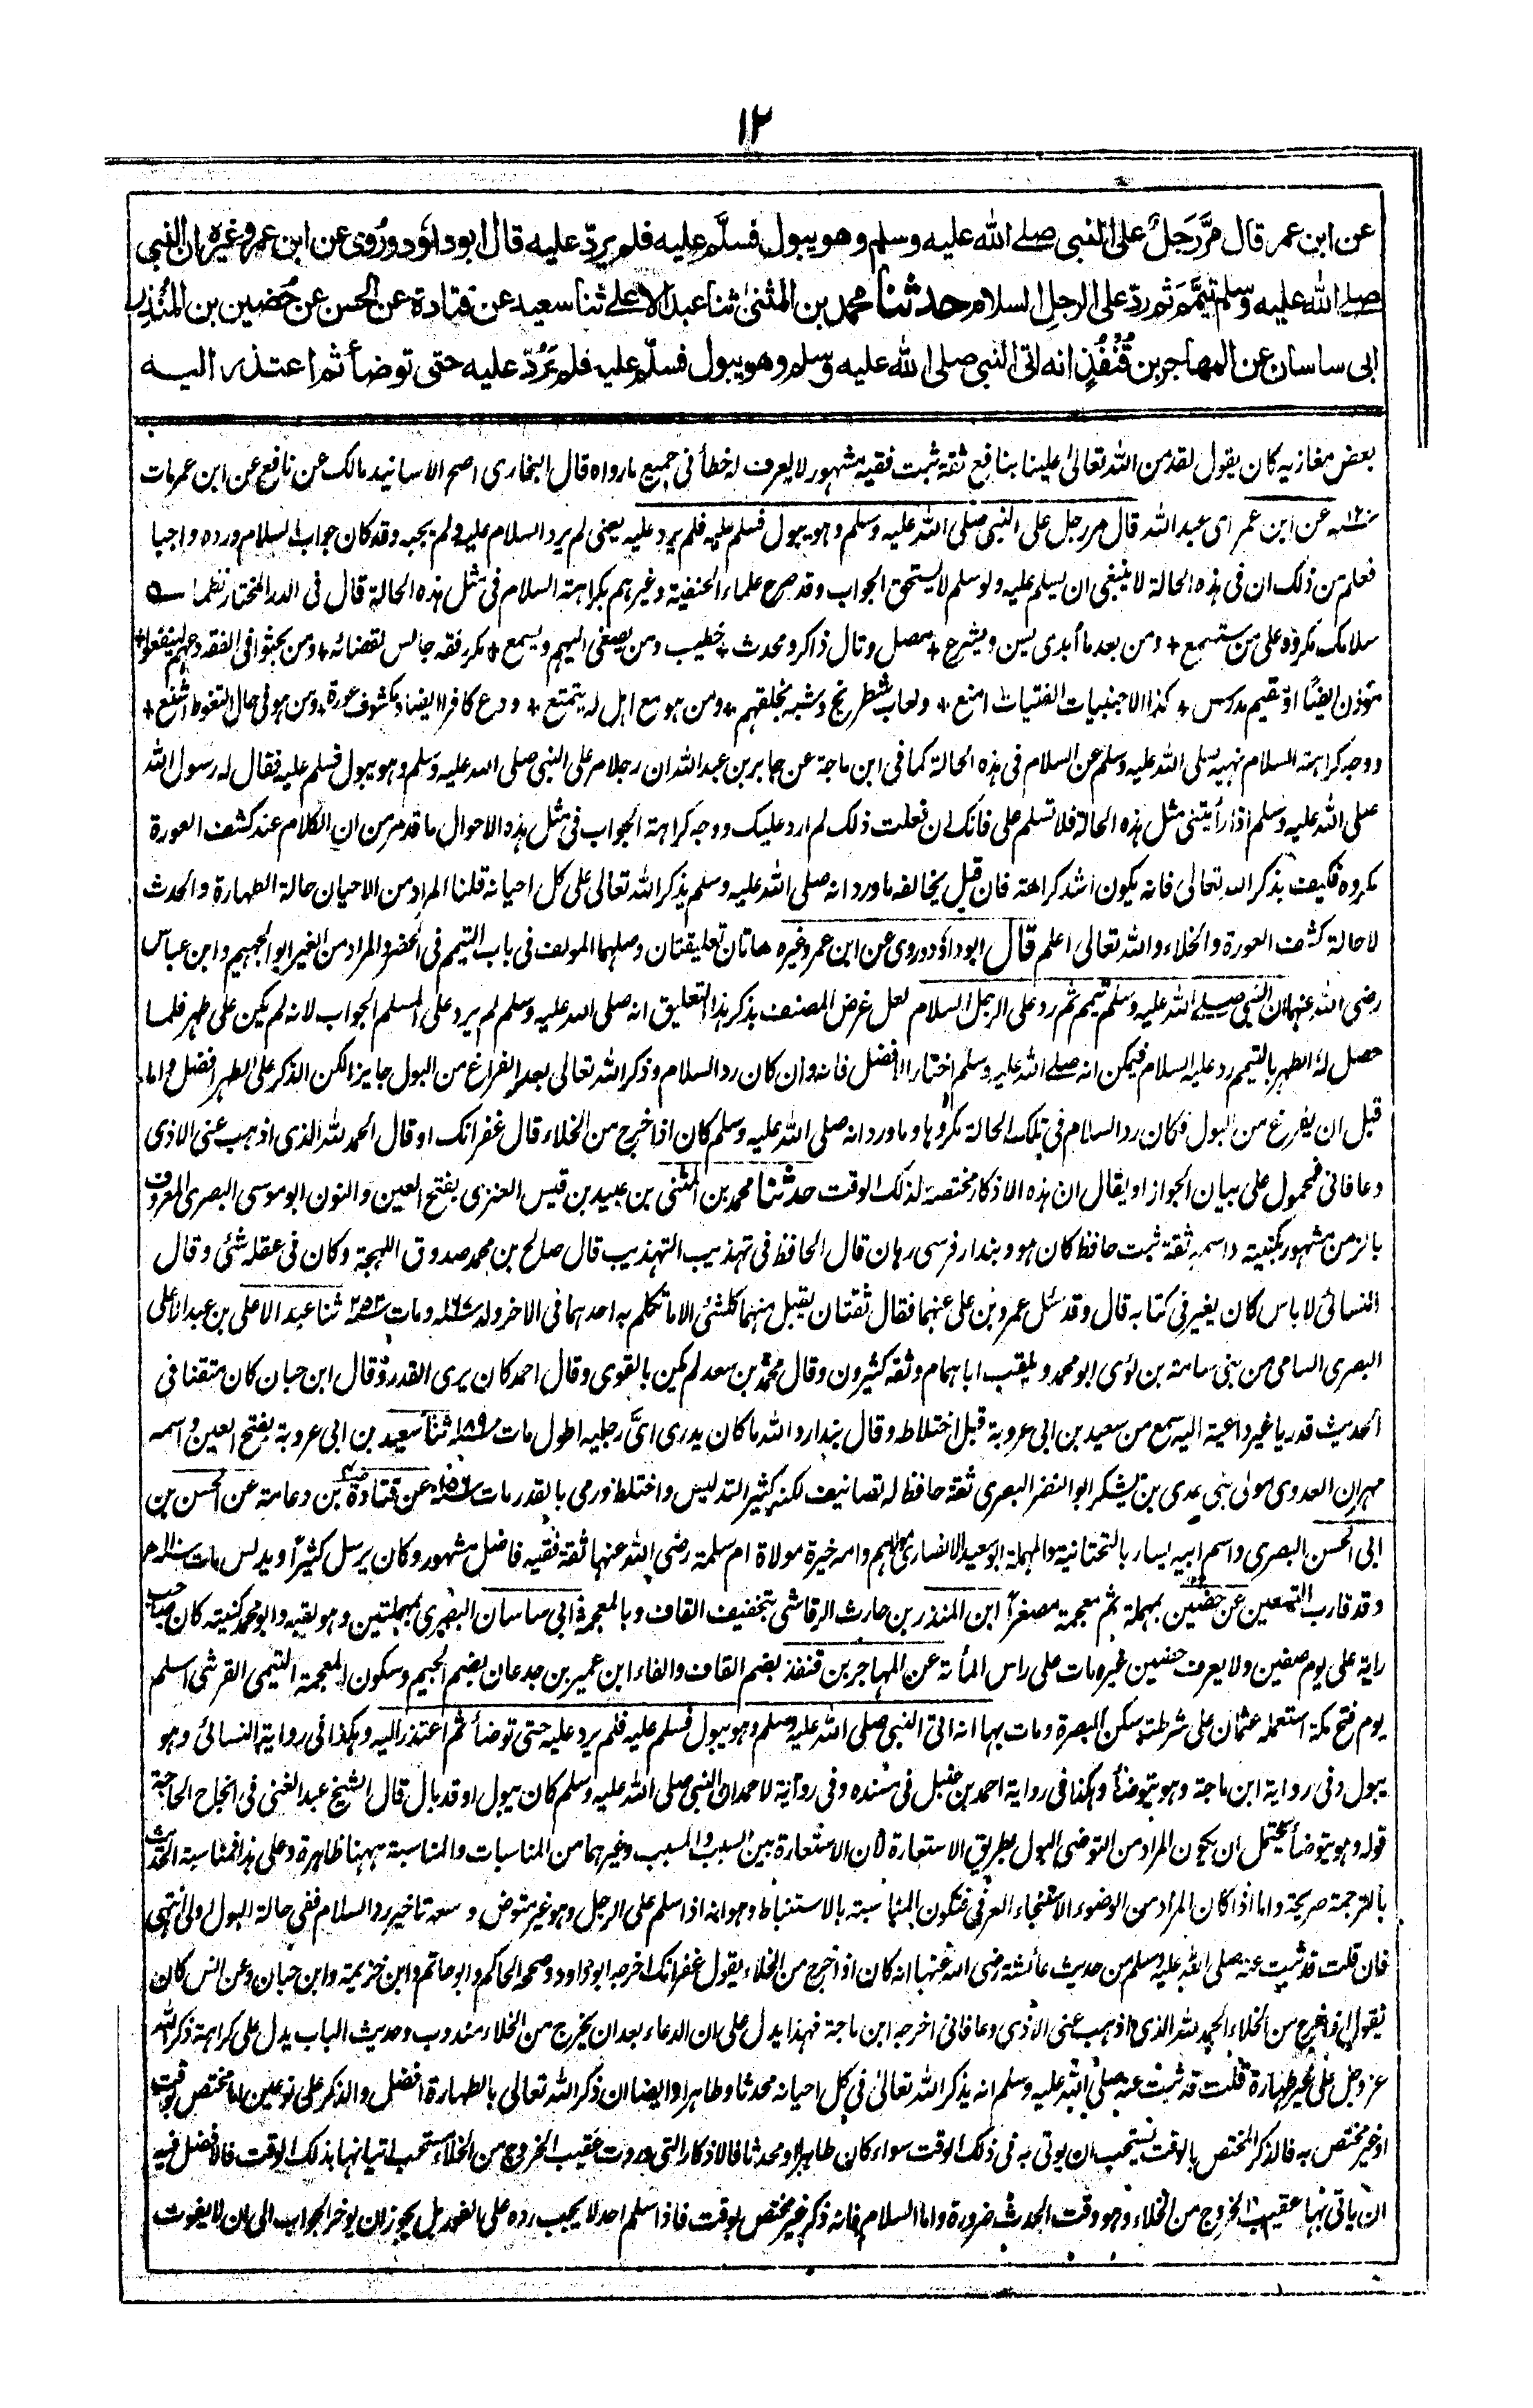 ١٢
عن ابن عمر قال مَرَّ رَجُلٌ على النبى صلى الله عليه وسلم وهو يبول فسلَّم عليه فلم يردّ عليه قال ابو داؤد ورُوى عن ابن عمر وغيره ان النبى
صلى الله عليه وسلم تيمَّمَ ثم ردّ على الرجلِ السلام حدثنا محمد بن المثنىٰ ثنا عبد الاعلى ثنا سعيد عن قتادة عن الحسن عن حُضين بن المُنذِر
ابى ساسان عن المهاجر بن قُنْفُذٍ انه اتى النبى صلى الله عليه وسلم وهو يبول فسلّم عليه فلم يَرُدّ عليه حتى توضأ ثم اعتذر اليه
بعض مغازيه كان يقول لقد من الله تعالىٰ علينا بنافع ثقة ثبت فقيه مشهور لا يعرف له خطأ فى جميع مارواه قال البخارى اصح الاسانيد مالك عن نافع عن ابن عمر مات
عن ابن عمر اى عبد الله قال مر رجل على النبى صلى الله عليه وسلم وهو يبول فسلم عليه فلم يرد عليه يعنى لم يرد السلام عليه ولم يجبه وقد كان جواب السلام ورده واجبا
فعلم من ذلك ان فى هذه الحالة لا ينبغى ان يسلم عليه ولو سلم لا يستحق الجواب وقد صرح علماء الحنفية وغيرهم بكراهة السلام فى مثل هذه الحالة قال فى الدر المختار نظما
سلامك مكروه على من ستسمع + ومن بعد ما أبدى يسن ويشرع + مصل وتال ذاكر ومحدث + خطيب ومن يصغى اليهم ويسمع + مكرر فقه جالس لقضائه + ومن بحثوا فى الفقه دعهم لينفعوا +
مؤذن ايضًا او مقيم مدرس + كذا الاجنبيات الفتيات امنع + ولعاب شطرنج وشبه بخلقهم + ومن هو مع اهل له يتمتع + ودع كافرا ايضا ومكشوف عورة + ومن هو فى حال التغوط اشنع +
ووجه كراهة السلام نهيه صلى الله عليه وسلم عن السلام فى هذه الحالة كما فى ابن ماجة عن جابر بن عبد الله ان رجلا مر على النبى صلى الله عليه وسلم وهو يبول فسلم عليه فقال له رسول الله
صلى الله عليه وسلم اذا رأيتنى مثل هذه الحالة فلا تسلم على فانك ان فعلت ذلك لم ارد عليك ووجه كراهة الجواب فى مثل هذه الاحوال ما قد مر من ان الكلام عند كشف العورة
مكروه فكيف بذكر الله تعالى فانه يكون اشد كراهة فان قيل يخالفه ما ورد انه صلى الله عليه وسلم يذكر الله تعالى على كل احيانه قلنا المراد من الاحيان حالة الطهارة والحدث
لا حالة كشف العورة والخلاء والله تعالى اعلم قال ابو داؤد وروى عن ابن عمر وغيره هاتان تعليقتان وصلهما المولف فى باب التيمم فى الحضر والمراد من الغير ابو الجهيم وابن عباس
رضى الله عنهما ان النبى صلى الله عليه وسلم تيمم ثم رد على الرجل السلام لعل غرض المصنف بذكر هذا التعليق انه صلى الله عليه وسلم لم يرد على المسلم الجواب لانه لم يكن على طهر فلما
حصل له الطهر بالتيمم رد عليه السلام فيمكن انه صلى الله عليه وسلم اختار الافضل فانه وان كان رد السلام وذكر الله تعالى بعد الفراغ من البول جايز الكن الذكر على الطهر افضل واما
قبل ان يفرغ من البول فكان رد السلام فى تلك الحالة مكروها وما ورد انه صلى الله عليه وسلم كان اذا خرج من الخلاء قال غفرانك او قال الحمد لله الذى اذهب عنى الاذى
وعافانى فمحمول على بيان الجواز او يقال ان هذه الاذكار مختصة لذلك الوقت حدثنا محمد بن المثنى بن عبيد بن قيس العنزى بفتح العين والنون ابو موسى البصرى المعروف
بالزمن مشهور بكنيته واسمه ثقة ثبت حافظ كان هو وبندار فرسى رهان قال الحافظ فى تهذيب التهذيب قال صالح بن محمد صدوق اللهجة وكان فى عقله شئى وقال
النسائى لا باس كان يغير فى كتابه قال وقد سئل عمرو بن على عنهما فقال ثقتان يقبل منهما كلشئى الا ما تكلم به احدهما فى الاخر ولد ١٦٧ ومات ٢٥٢ ثنا عبد الاعلى بن عبد الاعلى
البصرى السامى من بنى سامة بن لؤى ابو محمد ويلقب ابا همام وثقه كثيرون وقال محمد بن سعد لم يكن بالقوى وقال احمد كان يرى القدر وقال ابن حبان كان متقنا فى
الحديث قدريا غير داعية اليه سمع من سعيد بن ابى عروبة قبل اختلاطه وقال بندار والله ما كان يدرى اىّ رجليه اطول مات ١٨٩ ثنا سعيد بن ابى عروبة بفتح العين واسمه
مهران العدوى مولى بنى عدى بن يشكر ابو النضر البصرى ثقة حافظ له تصانيف لكنه كثير التدليس واختلط ورمى بالقدر مات ١٥٦ عن قتادة بن دعامة عن الحسن بن
ابى الحسن البصرى واسم ابيه يسار بالتحتانية والمهملة ابو سعيد الانصارى مولاهم وامه خيرة مولاة ام سلمة رضى الله عنها ثقة فقيه فاضل مشهور وكان يرسل كثيرًا ويدلس مات
وقد قارب التسعين عن حضين بمهملة ثم معجمة مصغرًا ابن المنذر بن حارث الرقاشى بتخفيف القاف وبالمعجمة ابى ساسان البصرى بمهملتين وهو لقبه وابو محمد كنيته كان صاحب
راية على يوم صفين ولا يعرف حضين غيره مات على راس المأئة عن المهاجر بن قنفذ بضم القاف والفاء ابن عمير بن جدعان بضم الجيم وسكون المعجمة التيمى القرشى اسلم
يوم فتح مكة استعمله عثمان على شرطته سكن البصرة ومات بها انه اتى النبى صلى الله عليه وسلم وهو يبول فسلم عليه فلم يرد عليه حتى توضأ ثم اعتذر اليه وهكذا فى رواية النسائى وهو
يبول وفى رواية ابن ماجة وهو يتوضأ وهكذا فى رواية احمد بن حنبل فى مسنده وفى رواية لاحمد ان النبى صلى الله عليه وسلم كان يبول او قد بال قال الشيخ عبد الغنى فى انجاح الحاجة
قوله وهو يتوضأ يحتمل ان يكون المراد من التوضى البول بطريق الاستعارة لان الاستعارة بين السبب والمسبب وغيرهما من المناسبات والمناسبة ههنا ظاهرة وعلى هذا فمناسبة الحديث
بالترجمة صريحة واما اذا كان المراد من الوضوء الاستنجاء العرفى فتكون المناسبة بالاستنباط وهو انه اذا سلم على الرجل وهو غير متوض وسعه تاخير رد السلام ففى حالة البول ولى انتهى
فان قلت قد ثبت عنه صلى الله عليه وسلم من حديث عائشة رضى الله عنها انه كان اذا خرج من الخلاء يقول غفرانك اخرجه ابو داود وصححه الحاكم وابو حاتم وابن خزيمة وابن حبان وعن انس كان
يقول اذا خرج من الخلاء الحمد لله الذى اذهب عنى الاذى وعافانى اخرجه ابن ماجة فهذا يدل على ان الدعاء بعد ان يخرج من الخلاء مندوب وحديث الباب يدل على كراهة ذكر الله
عز وجل على غير طهارة قلت قد ثبت عنه صلى الله عليه وسلم انه يذكر الله تعالىٰ فى كل احيانه محدثا وطاهرا وايضا ان ذكر الله تعالى بالطهارة افضل والذكر على نوعين اما مختص بوقت
او غير مختص به فالذكر المختص بالوقت يستحب ان يوتى به فى ذلك الوقت سواء كان طاهرا ومحدثا فالاذكار التى وردت عقيب الخروج من الخلاء مستحب اتيانها بذلك الوقت فالافضل فيه
ان ياتى بها عقيب الخروج من الخلاء وهو وقت الحدث ضرورة واما السلام فانه ذكر غير مختص بوقت فاذا سلم احد لا يجب رده على الفور بل يجوز ان يوخر الجواب الى ان لا يفوت